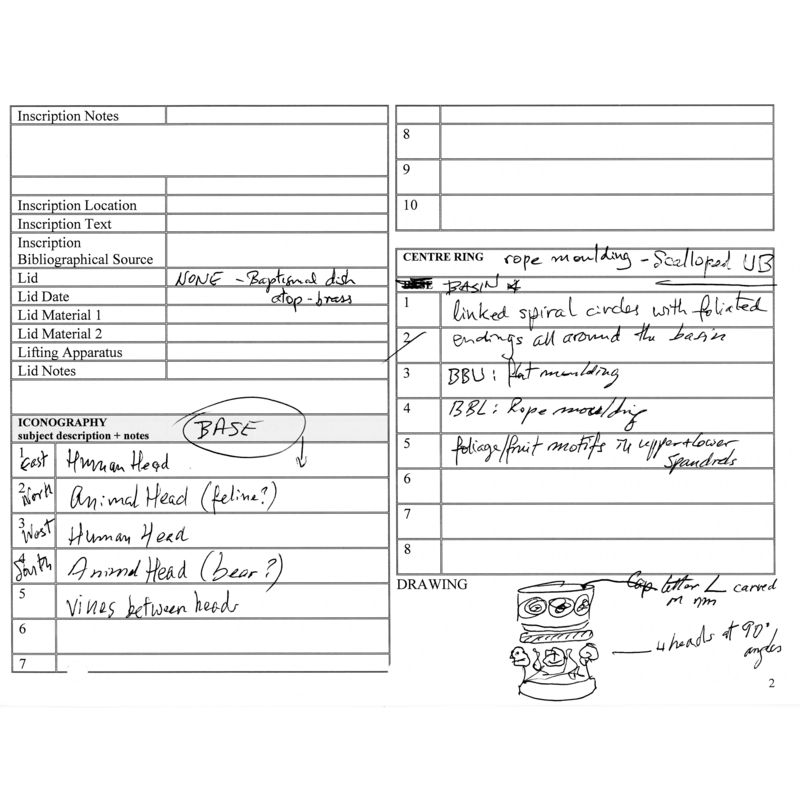 Inscription Notes
Inscription Location
Inscription Text
Inscription
Bibliographical Source
Lid NONE - Baptismal dish
atop - brass
Lid Date
Lid Material 1
Lid Material 2
Lifting Apparatus
Lid Notes
ICONOGRAPHY
subject description + notes BASE
1 East Human Head
2 North Animal Head (feline?)
3 West Human Head
4 South Animal Head (bear?)
5 Vines between heads
6
7
8
9
10
CENTRE RING rope moulding - Scalloped UB
BASIN
1 linked spiral circles with foliated
2 endings all around the basin
3 BBU: flat moulding
4 BBL: Rope moulding
5 foliage/fruit motifs in upper+lower
Spandrels
6
7
8
DRAWING
Cap letter L carved
4 heads at 90°
angles
2